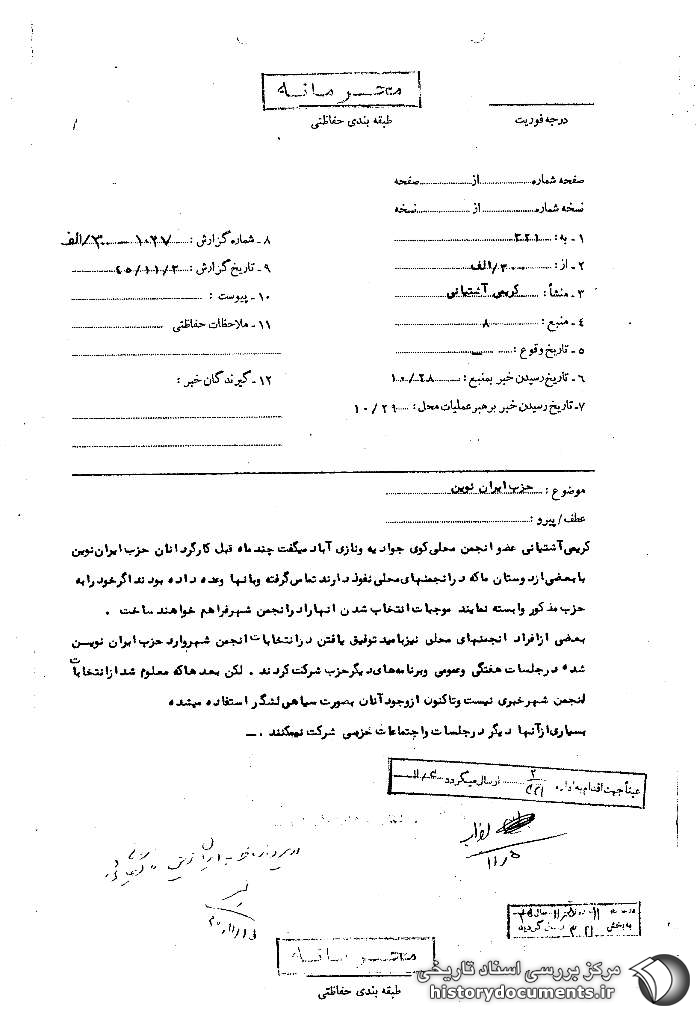 محرمانه
طبقه بندی حفاظتی
درجه فوریت
صفحه شماره ........ از ........ صفحه
نسخه شماره ........ از ........ نسخه
۱ـ به : ۳۲۱
۲ـ از : ۳۰۰/الف
۳ـ منشأ : کریمی آشتیانی
۴ـ منبع : ۸
۵ـ تاریخ وقوع : ـ
۶ـ تاریخ رسیدن خبر بمنبع : ۱۰/۲۸
۷ـ تاریخ رسیدن خبر برهبر عملیات محل : ۱۰/۲۹
۸ـ شماره گزارش : ۱۰۲۷ ۳۰۰/الف
۹ـ تاریخ گزارش : ۴۵/۱۱/۲
۱۰ـ پیوست :
۱۱ـ ملاحظات حفاظتی
۱۲ـ گیرندگان خبر :
موضوع : حزب ایران نوین
عطف/پیرو :
کریمی آشتیانی عضو انجمن محلی کوی جوادیه ونازی آباد میگفت چند ماه قبل کارگردانان حزب ایران نوین
با بعضی ازدوستان ما که درانجمنهای محلی نفوذ دارند تماس گرفته وبانها وعده داده بودند اگر خود را به
حزب مذکور وابسته نمایند موجبات انتخاب شدن انهارادرانجمن شهر فراهم خواهند ساخت .
بعضی ازافراد انجمنهای محلی نیزبامید توفیق یافتن درانتخابات انجمن شهروارد حزب ایران نوین
شده درجلسات هفتگی وعمومی وبرنامه های دیگر حزب شرکت کردند . لکن بعدها که معلوم شد ازانتخابات
انجمن شهر خبری نیست وتاکنون ازوجود آنان بصورت سیاهی لشگر استفاده میشده
بسیاری ازآنها دیگر درجلسات واجتماعات حزبی شرکت نمیکنند . ـ
عیناً جهت اقدام به اداره ارسال میگردد
۱۱/۵
محرمانه
طبقه بندی حفاظتی
مرکز بررسی اسناد تاریخی
historydocuments.ir